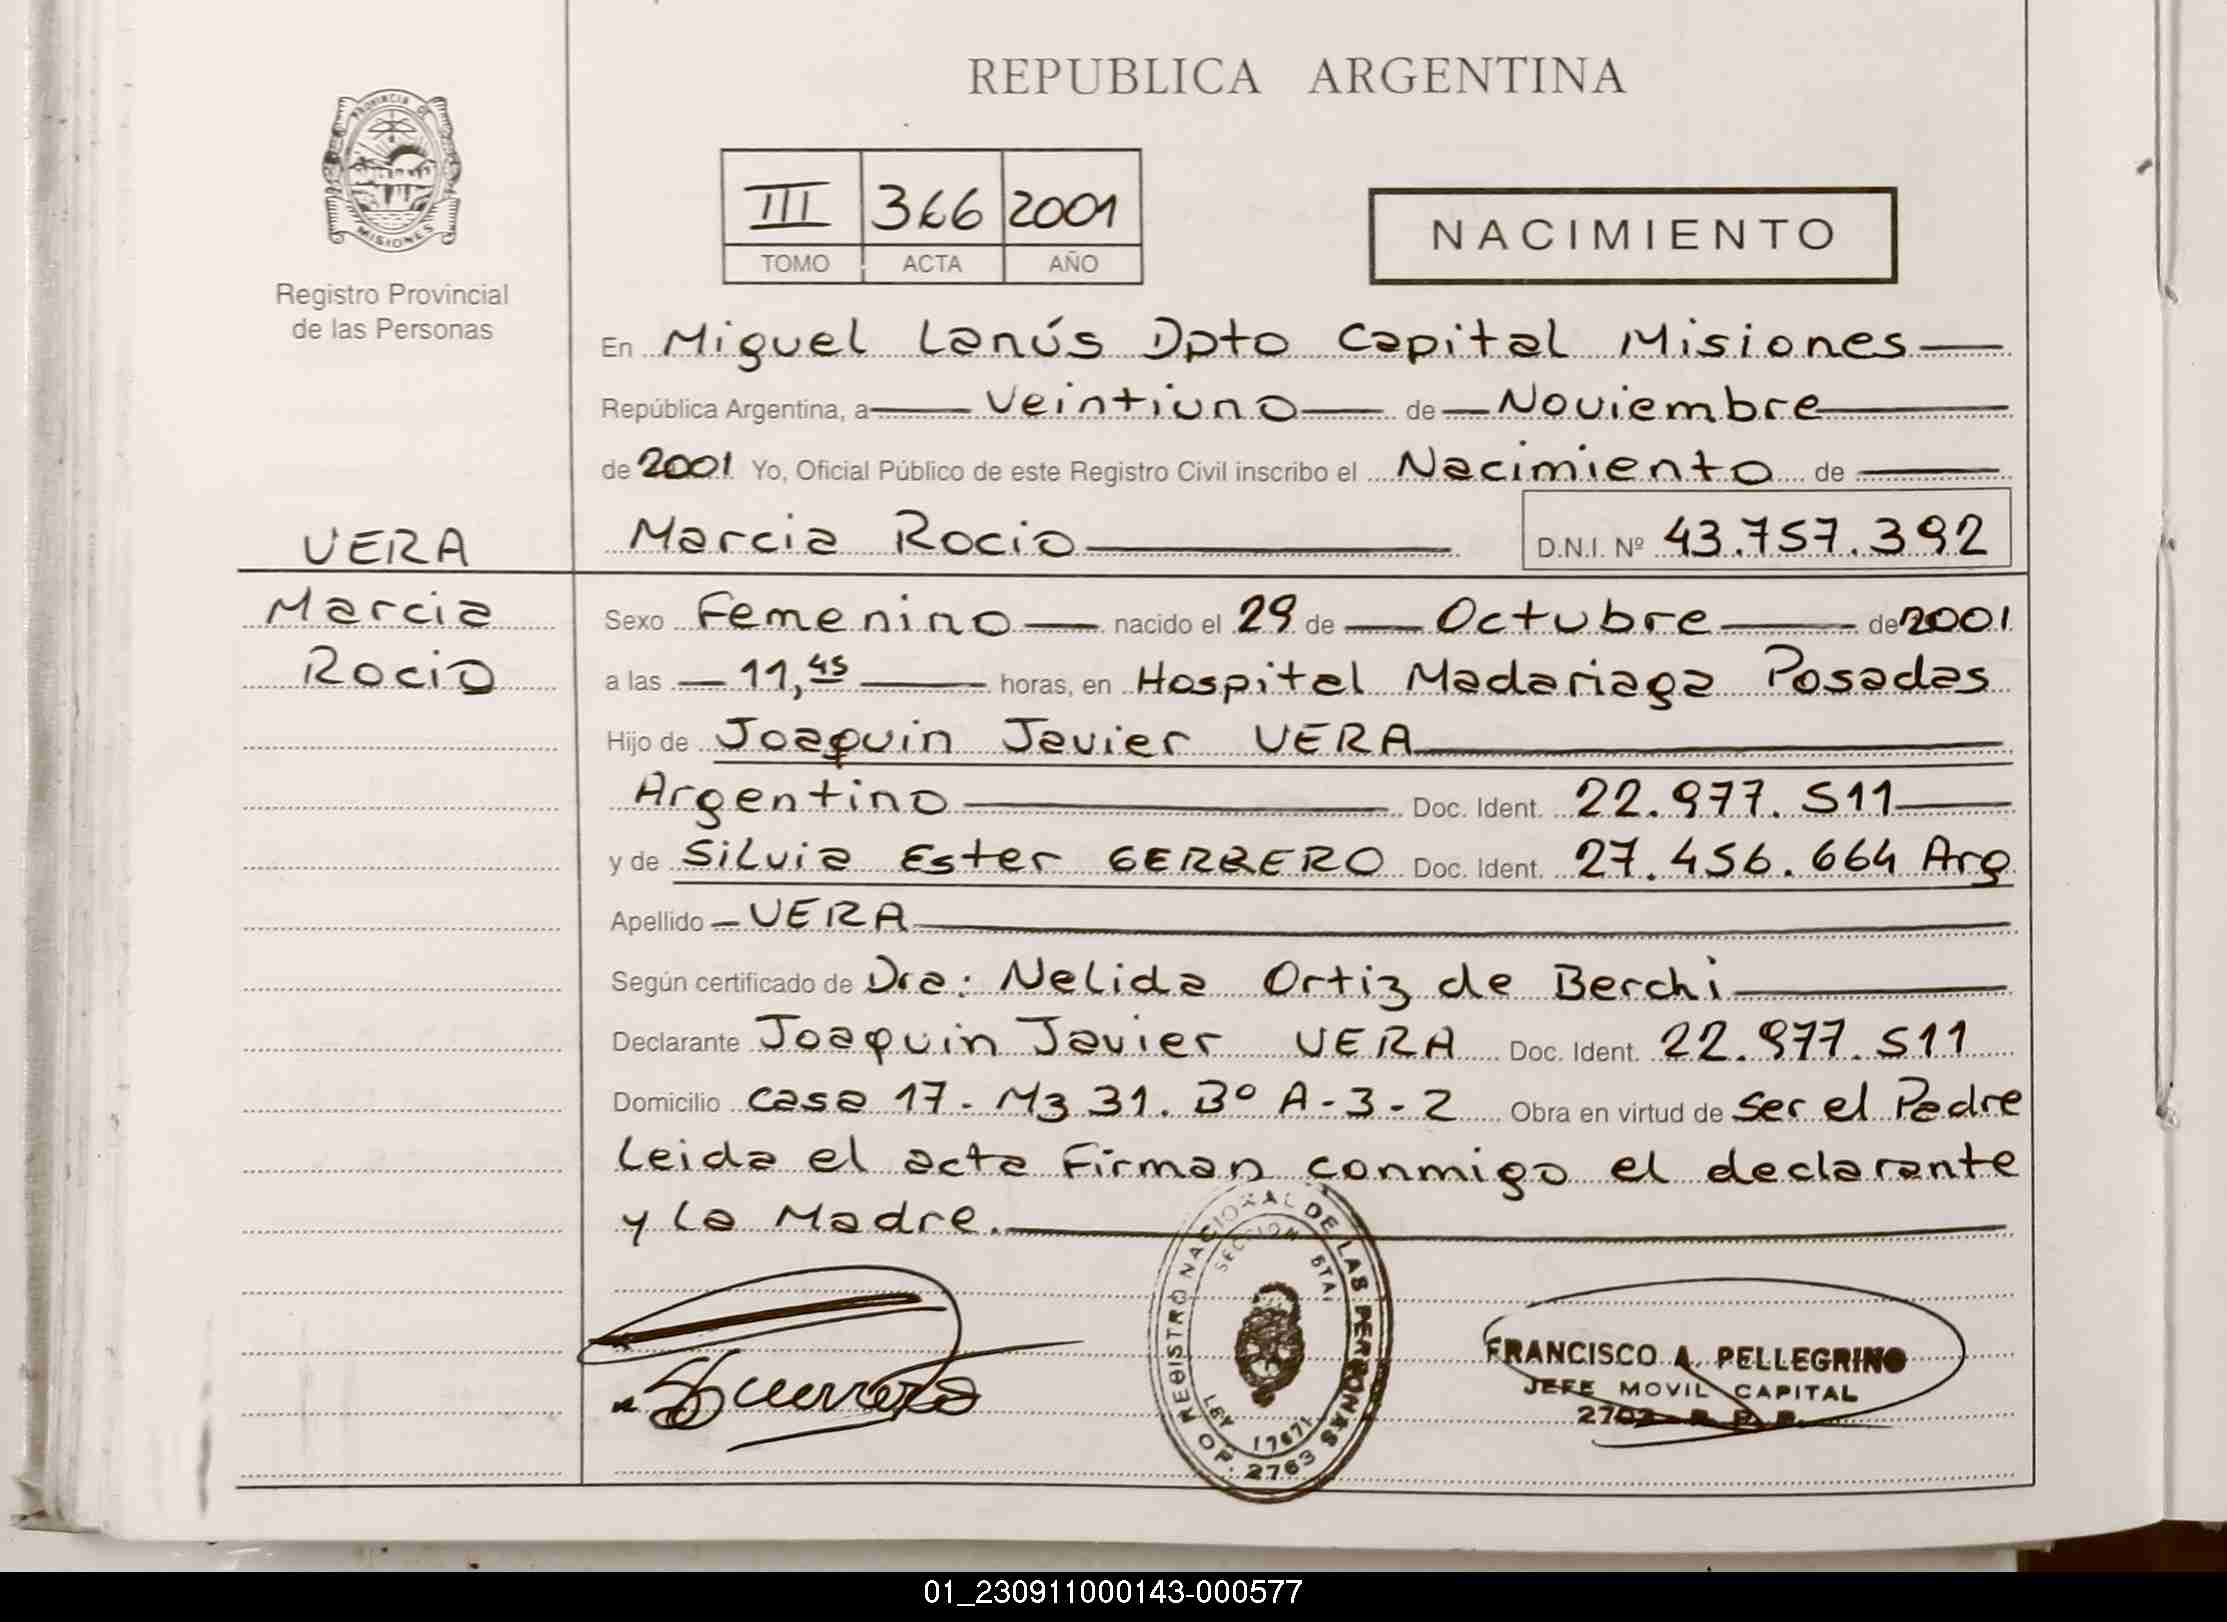 REPUBLICA ARGENTINA
PROVINCIA DE
MISIONES
Registro Provincial
de las Personas
III 366 2001
TOMO ACTA AÑO
NACIMIENTO
En Miguel Lanús Dpto Capital Misiones
República Argentina, a Veintiuno de Noviembre
de 2001 Yo, Oficial Público de este Registro Civil inscribo el Nacimiento de
VERA
Marcia Rocio
Marcia Rocio D.N.I. Nº 43.757.392
Sexo Femenino nacido el 29 de Octubre de 2001
a las 11,45 horas, en Hospital Madariaga Posadas
Hijo de Joaquin Javier VERA
Argentino Doc. Ident. 22.977.511
y de Silvia Ester GERRERO Doc. Ident. 27.456.664 Arg
Apellido VERA
Según certificado de Dra: Nelida Ortiz de Berchi
Declarante Joaquin Javier VERA Doc. Ident. 22.977.511
Domicilio casa 17 - Mz 31. Bº A-3-2 Obra en virtud de ser el Padre
Leida el acta Firman conmigo el declarante
y la Madre.
REGISTRO NACIONAL DE LAS PERSONAS
SECCION STA.
LEY 17671
OF. 2763
FRANCISCO A. PELLEGRINO
JEFE MOVIL CAPITAL
01_230911000143-000577